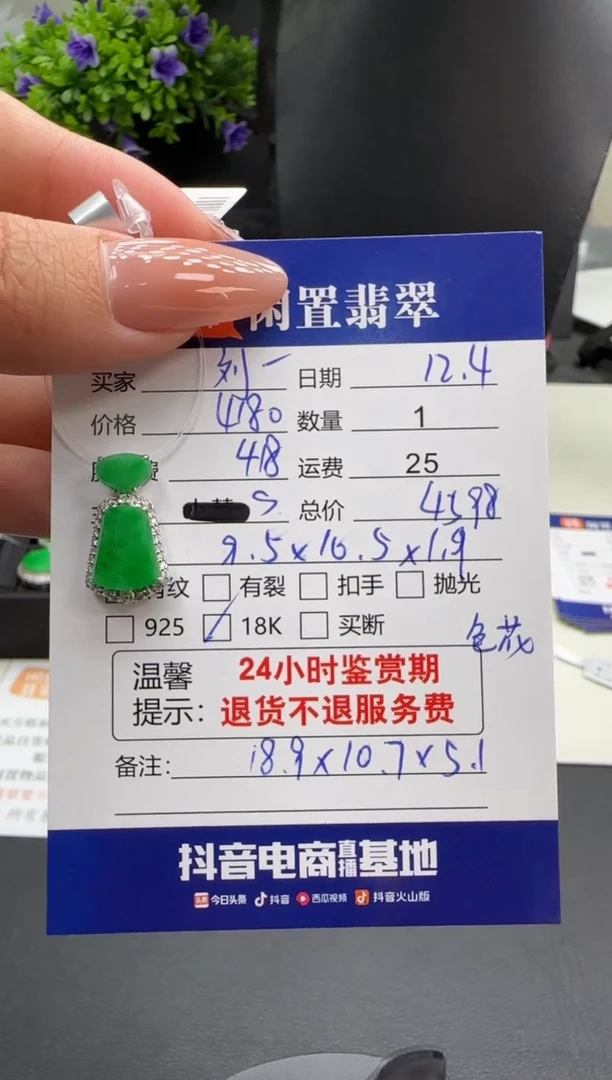 闲置翡翠
买家 刘一 日期 12.4
价格 4180 数量 1
费 418 运费 25
总价 4598
9.5×16.5×1.9
纹 有裂 扣手 抛光
925 18K 买断
色花
温馨 24小时鉴赏期
提示: 退货不退服务费
备注: 18.9×10.7×5.1
抖音电商直播基地
头条 今日头条 抖音 西瓜视频 抖音火山版